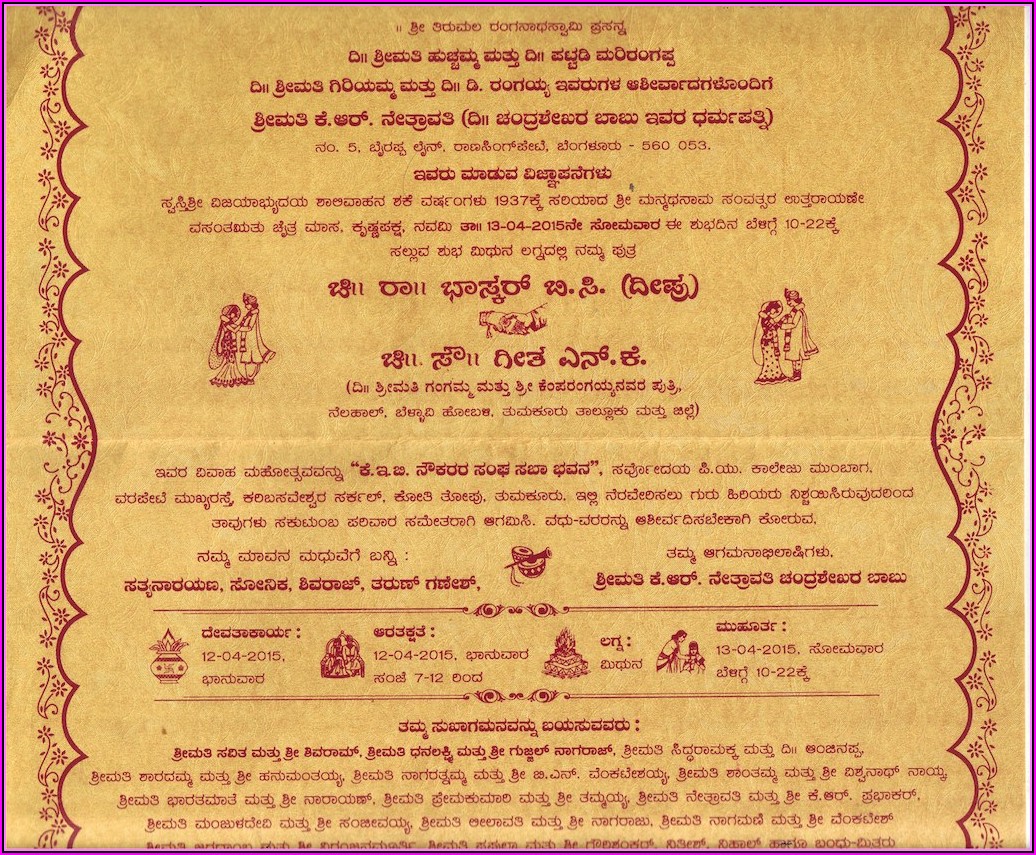 ॥ ಶ್ರೀ ತಿರುಮಲ ರಂಗನಾಥಸ್ವಾಮಿ ಪ್ರಸನ್ನ
ದಿ॥ ಶ್ರೀಮತಿ ಹುಚ್ಚಮ್ಮ ಮತ್ತು ದಿ॥ ಪಟ್ಟಡಿ ಮರಿರಂಗಪ್ಪ
ದಿ॥ ಶ್ರೀಮತಿ ಗಿರಿಯಮ್ಮ ಮತ್ತು ದಿ॥ ಡಿ. ರಂಗಯ್ಯ ಇವರುಗಳ ಆಶೀರ್ವಾದಗಳೊಂದಿಗೆ
ಶ್ರೀಮತಿ ಕೆ.ಆರ್. ನೇತ್ರಾವತಿ (ದಿ॥ ಚಂದ್ರಶೇಖರ ಬಾಬು ಇವರ ಧರ್ಮಪತ್ನಿ)
ನಂ. 5, ಬೈರಪ್ಪ ಲೈನ್, ರಾಣಸಿಂಗ್‌ಪೇಟೆ, ಬೆಂಗಳೂರು - 560 053.
ಇವರು ಮಾಡುವ ವಿಜ್ಞಾಪನೆಗಳು
ಸ್ವಸ್ತಿಶ್ರೀ ವಿಜಯಾಭ್ಯುದಯ ಶಾಲಿವಾಹನ ಶಕೆ ವರ್ಷಂಗಳು 1937ಕ್ಕೆ ಸರಿಯಾದ ಶ್ರೀ ಮನ್ಮಥನಾಮ ಸಂವತ್ಸರ ಉತ್ತರಾಯಣೇ
ವಸಂತಋತು ಚೈತ್ರ ಮಾಸ, ಕೃಷ್ಣಪಕ್ಷ, ನವಮಿ ತಾ॥ 13-04-2015ನೇ ಸೋಮವಾರ ಈ ಶುಭದಿನ ಬೆಳಿಗ್ಗೆ 10-22ಕ್ಕೆ
ಸಲ್ಲುವ ಶುಭ ಮಿಥುನ ಲಗ್ನದಲ್ಲಿ ನಮ್ಮ ಪುತ್ರ
ಚಿ॥ ರಾ॥ ಭಾಸ್ಕರ್ ಬಿ.ಸಿ. (ದೀಪು)
ಚಿ॥. ಸೌ॥ ಗೀತ ಎನ್.ಕೆ.
(ದಿ॥ ಶ್ರೀಮತಿ ಗಂಗಮ್ಮ ಮತ್ತು ಶ್ರೀ ಕೆಂಪರಂಗಯ್ಯನವರ ಪುತ್ರಿ,
ನೆಲಹಾಲ್, ಬೆಳ್ಳಾವಿ ಹೋಬಳಿ, ತುಮಕೂರು ತಾಲ್ಲೂಕು ಮತ್ತು ಜಿಲ್ಲೆ)
ಇವರ ವಿವಾಹ ಮಹೋತ್ಸವವನ್ನು “ಕೆ.ಇ.ಬಿ. ನೌಕರರ ಸಂಘ ಸಬಾ ಭವನ”, ಸರ್ವೋದಯ ಪಿ.ಯು. ಕಾಲೇಜು ಮುಂಬಾಗ,
ವರಪೇಟೆ ಮುಖ್ಯರಸ್ತೆ, ಕರಿಬಸವೇಶ್ವರ ಸರ್ಕಲ್, ಕೋತಿ ತೋಪು, ತುಮಕೂರು, ಇಲ್ಲಿ ನೆರವೇರಿಸಲು ಗುರು ಹಿರಿಯರು ನಿಶ್ಚಯಿಸಿರುವುದರಿಂದ
ತಾವುಗಳು ಸಕುಟುಂಬ ಪರಿವಾರ ಸಮೇತರಾಗಿ ಆಗಮಿಸಿ. ವಧು-ವರರನ್ನು ಆಶೀರ್ವದಿಸಬೇಕಾಗಿ ಕೋರುವ,
ನಮ್ಮ ಮಾವನ ಮಧುವೆಗೆ ಬನ್ನಿ :
ಸತ್ಯನಾರಾಯಣ, ಸೋನಿಕ, ಶಿವರಾಜ್, ತರುಣ್ ಗಣೇಶ್,
ತಮ್ಮ ಆಗಮನಾಭಿಲಾಷಿಗಳು,
ಶ್ರೀಮತಿ ಕೆ.ಆರ್. ನೇತ್ರಾವತಿ ಚಂದ್ರಶೇಖರ ಬಾಬು
ದೇವತಾಕಾರ್ಯ :
12-04-2015,
ಭಾನುವಾರ
ಆರತಕ್ಷತೆ :
12-04-2015, ಭಾನುವಾರ
ಸಂಜೆ 7-12 ರಿಂದ
ಲಗ್ನ :
ಮಿಥುನ
ಮುಹೂರ್ತ :
13-04-2015, ಸೋಮವಾರ
ಬೆಳಿಗ್ಗೆ 10-22ಕ್ಕೆ
ತಮ್ಮ ಸುಖಾಗಮನವನ್ನು ಬಯಸುವವರು :
ಶ್ರೀಮತಿ ಸವಿತ ಮತ್ತು ಶ್ರೀ ಶಿವರಾಮ್, ಶ್ರೀಮತಿ ಧನಲಕ್ಷ್ಮಿ ಮತ್ತು ಶ್ರೀ ಗುಜ್ಜಲ್ ನಾಗರಾಜ್, ಶ್ರೀಮತಿ ಸಿದ್ದರಾಮಕ್ಕ ಮತ್ತು ದಿ॥ ಆಂಜಿನಪ್ಪ,
ಶ್ರೀಮತಿ ಶಾರದಮ್ಮ ಮತ್ತು ಶ್ರೀ ಹನುಮಂತಯ್ಯ, ಶ್ರೀಮತಿ ನಾಗರತ್ನಮ್ಮ ಮತ್ತು ಶ್ರೀ ಬಿ.ಎನ್. ವೆಂಕಟೇಶಯ್ಯ, ಶ್ರೀಮತಿ ಶಾಂತಮ್ಮ ಮತ್ತು ಶ್ರೀ ವಿಶ್ವನಾಥ್ ನಾಯ್ಕ
ಶ್ರೀಮತಿ ಭಾರತಮಾತೆ ಮತ್ತು ಶ್ರೀ ನಾರಾಯಣ್, ಶ್ರೀಮತಿ ಪ್ರೇಮಕುಮಾರಿ ಮತ್ತು ಶ್ರೀ ತಮ್ಮಯ್ಯ, ಶ್ರೀಮತಿ ನೇತ್ರಾವತಿ ಮತ್ತು ಶ್ರೀ ಕೆ.ಆರ್. ಪ್ರಭಾಕರ್,
ಶ್ರೀಮತಿ ಮಂಜುಳದೇವಿ ಮತ್ತು ಶ್ರೀ ಸಂಜೀವಯ್ಯ, ಶ್ರೀಮತಿ ಲೀಲಾವತಿ ಮತ್ತು ಶ್ರೀ ನಾಗರಾಜು, ಶ್ರೀಮತಿ ನಾಗಮಣಿ ಮತ್ತು ಶ್ರೀ ವೆಂಕಟೇಶ್